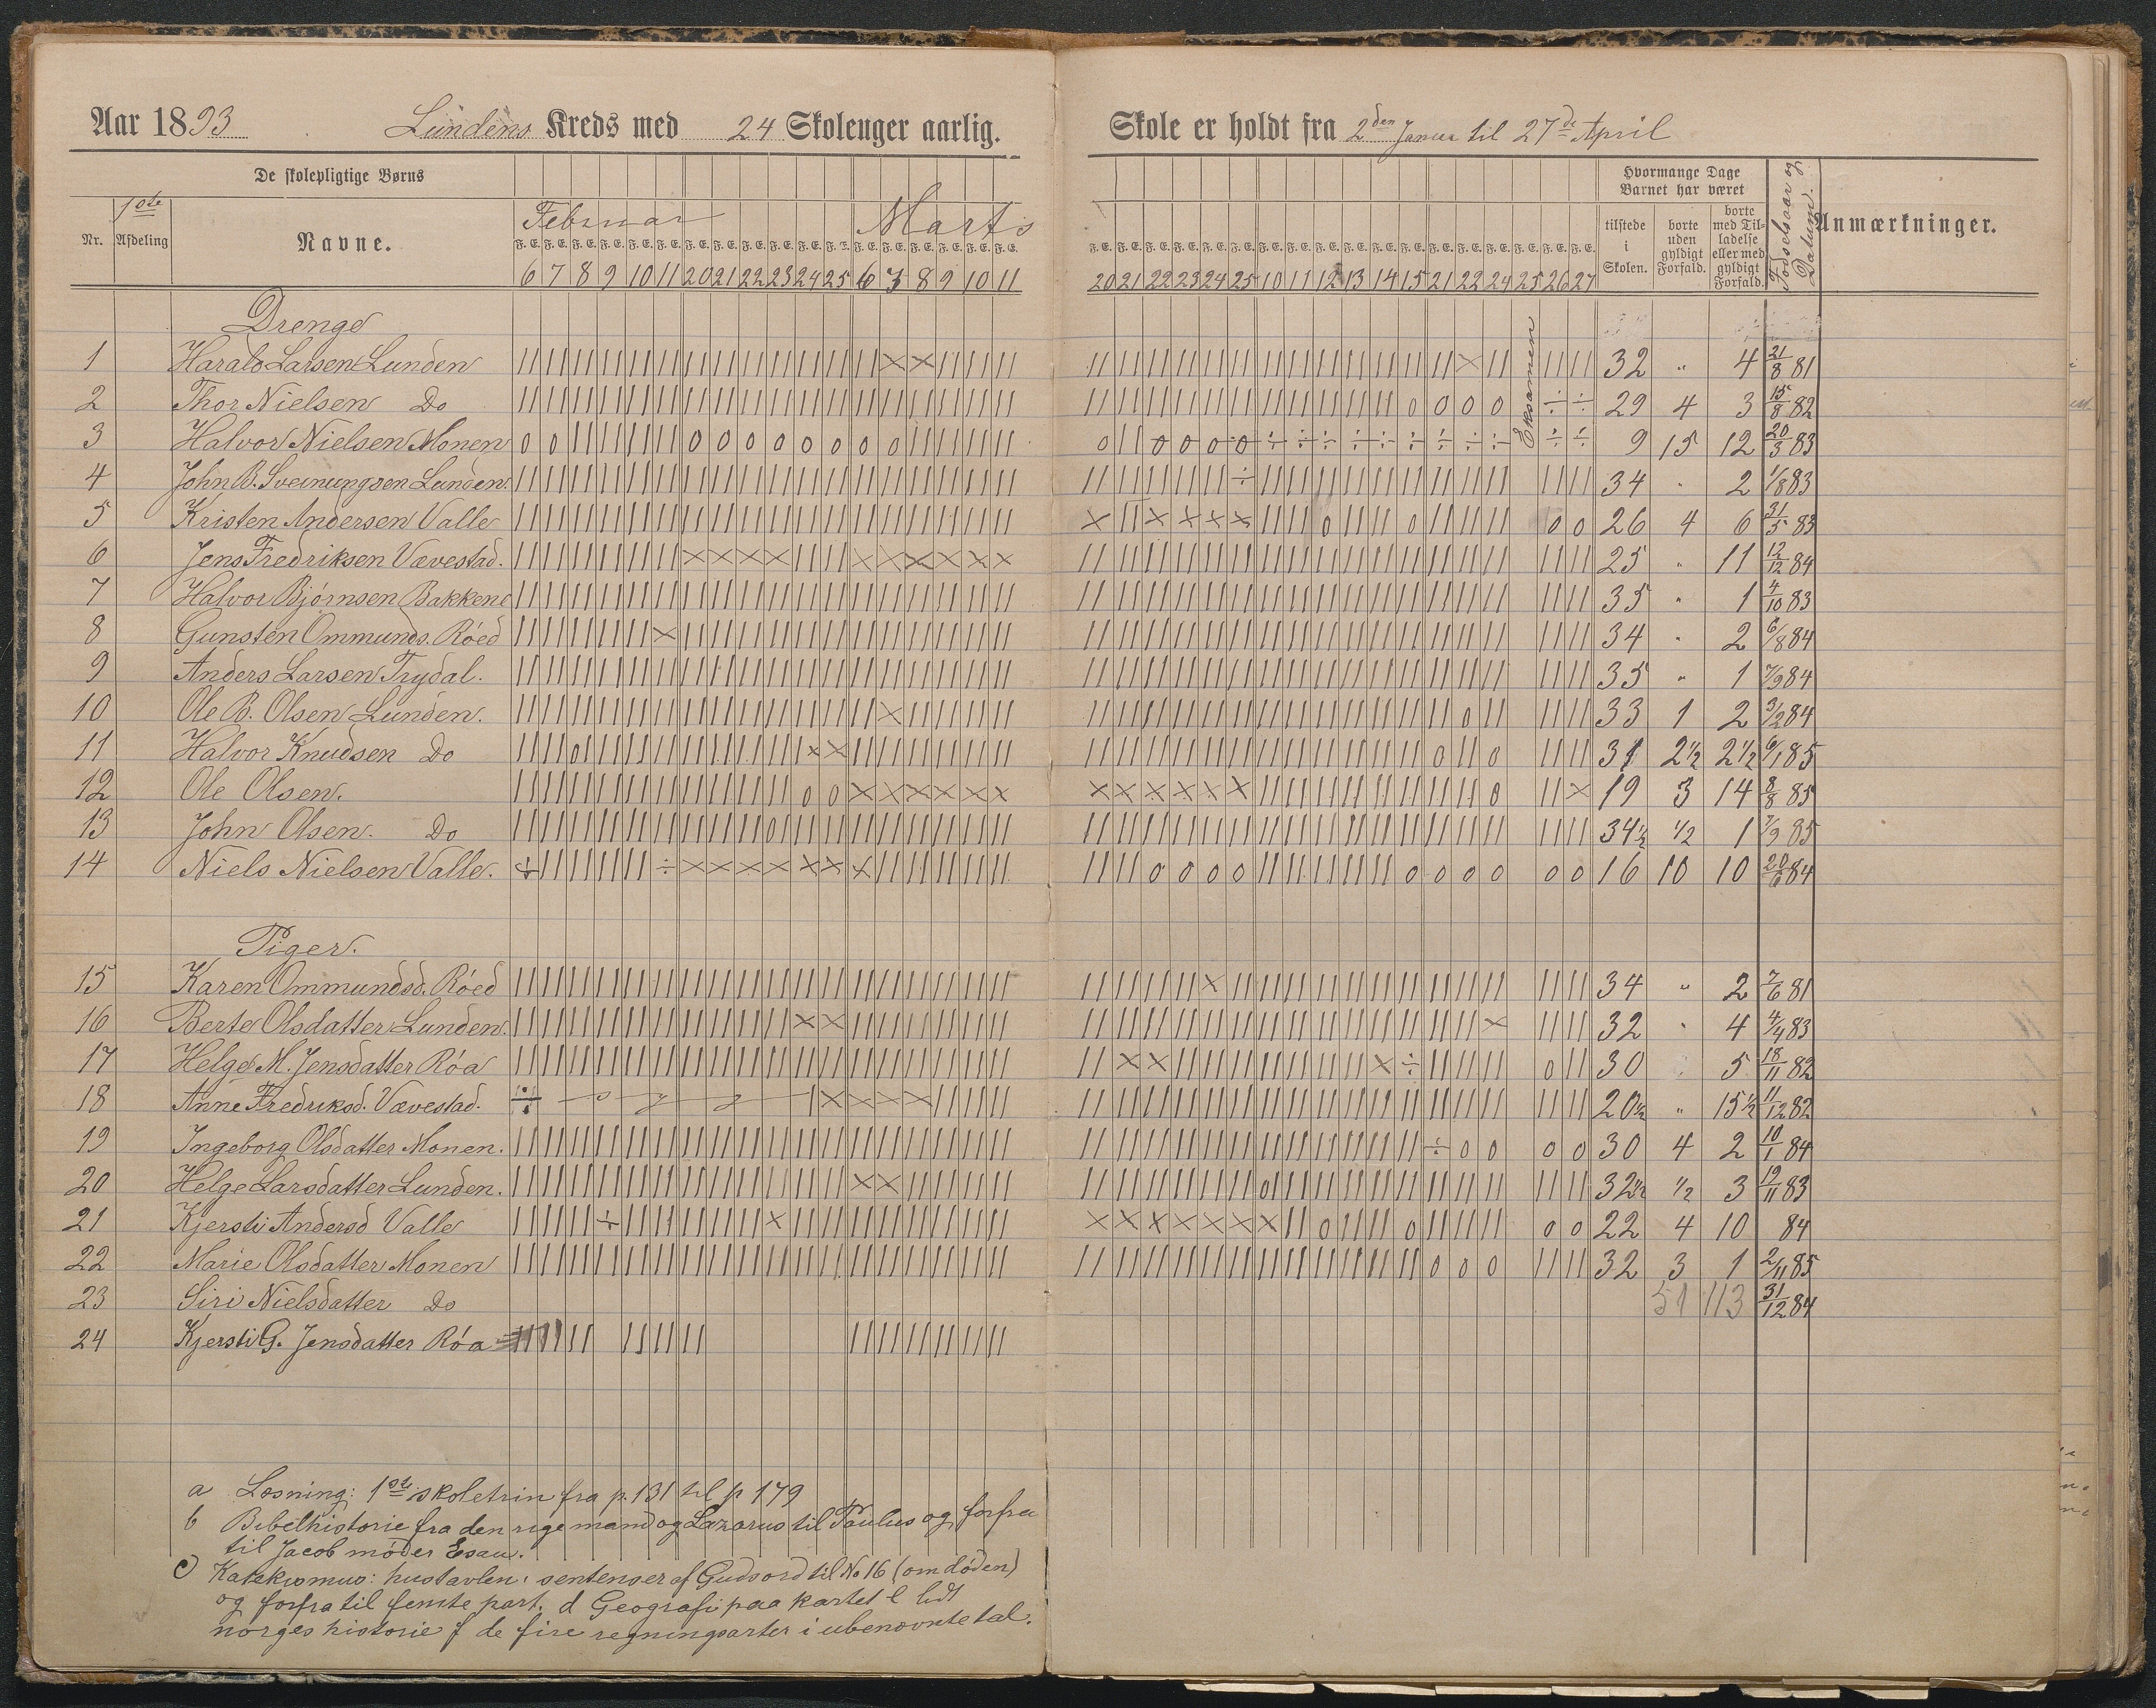 Aar 1893 Lundens Kreds med 24 Skoleuger aarlig.
Skole er holdt fra 2den Januar til 27de April
De skolepligtige Børns
Nr. 1ste Afdeling Navne.
Februar Marts
F. E. F. E. F. E. F. E. F. E. F. E. F. E. F. E. F. E. F. E. F. E. F. E. F. E. F. E. F. E. F. E. F. E. F. E.
6 7 8 9 10 11 20 21 22 23 24 25 6 7 8 9 10 11
F. E. F. E. F. E. F. E. F. E. F. E. F. E. F. E. F. E. F. E. F. E. F. E. F. E. F. E. F. E. F. E. F. E. F. E.
20 21 22 23 24 25 10 11 12 13 14 15 21 22 24 25 26 27
Hvormange Dage Barnet har været
tilstede i Skolen.
borte uden gyldigt Forfald.
borte med Tilladelse eller med gyldigt Forfald.
Fødselsaar og Datum.
Anmærkninger.
Eksamen
Drenge
1 Harald Larsen Lunden 32 " 4 21/8 81
2 Thor Nielsen Do 29 4 3 15/8 82
3 Halvor Nielsen Monen 9 15 12 20/3 83
4 John B. Sveinungsen Lunden. 34 " 2 1/8 83
5 Kristen Andersen Valle 26 4 6 31/5 83
6 Jens Fredriksen Vævestad. 25 " 11 12/12 84
7 Halvor Bjørnsen Bakkene 35 " 1 4/10 83
8 Gunsten Ommunds. Røed 34 " 2 6/8 84
9 Anders Larsen Trydal. 35 " 1 7/9 84
10 Ole B. Olsen Lunden. 33 1 2 3/2 84
11 Halvor Knudsen Do 31 2½ 2½ 6/1 85
12 Ole Olsen. 19 3 14 8/8 85
13 John Olsen. Do 34½ ½ 1 7/9 85
14 Niels Nielsen Valle. 16 10 10 20/6 84
Piger.
15 Karen Ommundsd. Røed 34 " 2 7/6 81
16 Berte Olsdatter Lunden. 32 " 4 4/4 83
17 Helge M. Jensdatter Røa 30 5 18/11 82
18 Anne Fredriksd. Vævestad. 20½ " 15½ 11/12 82
19 Ingeborg Olsdatter Monen. 30 4 2 10/1 84
20 Helge Larsdatter Lunden. 32½ ½ 3 19/11 83
21 Kjersti Andersd Valle 22 4 10 84
22 Marie Olsdatter Monen 32 3 1 2/11 85
23 Siri Nielsdatter Do 51 113 31/12 84
24 Kjersti G. Jensdatter Røa
a Læsning: 1ste skoletrin fra p. 131 til p 179
b Bibelhistorie fra den rige mand og Lazarus til Paulus og forfra
til Jacob møder Esau.
c) Katekismus: hustavlen, sentenser af Guds ord til No 16 (om døden)
og forfra til femte part. d Geografi paa kartet e lidt
norges historie f de fire regningsarter i ubenævnte tal.